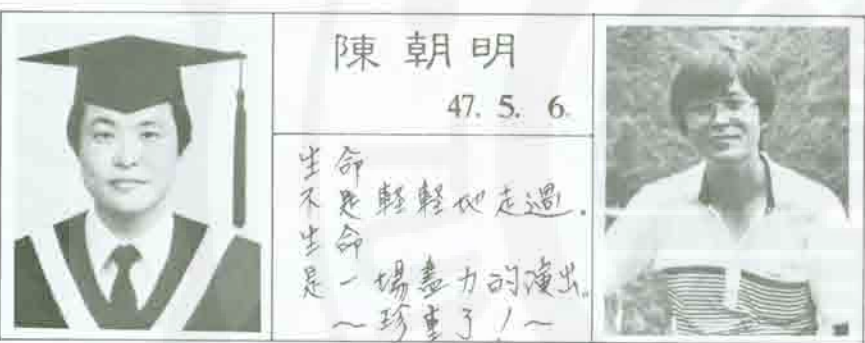 陳朝明
47. 5. 6.
生命
不是軽軽地走過.
生命
是一場盡力的演出。
～珍重了!～